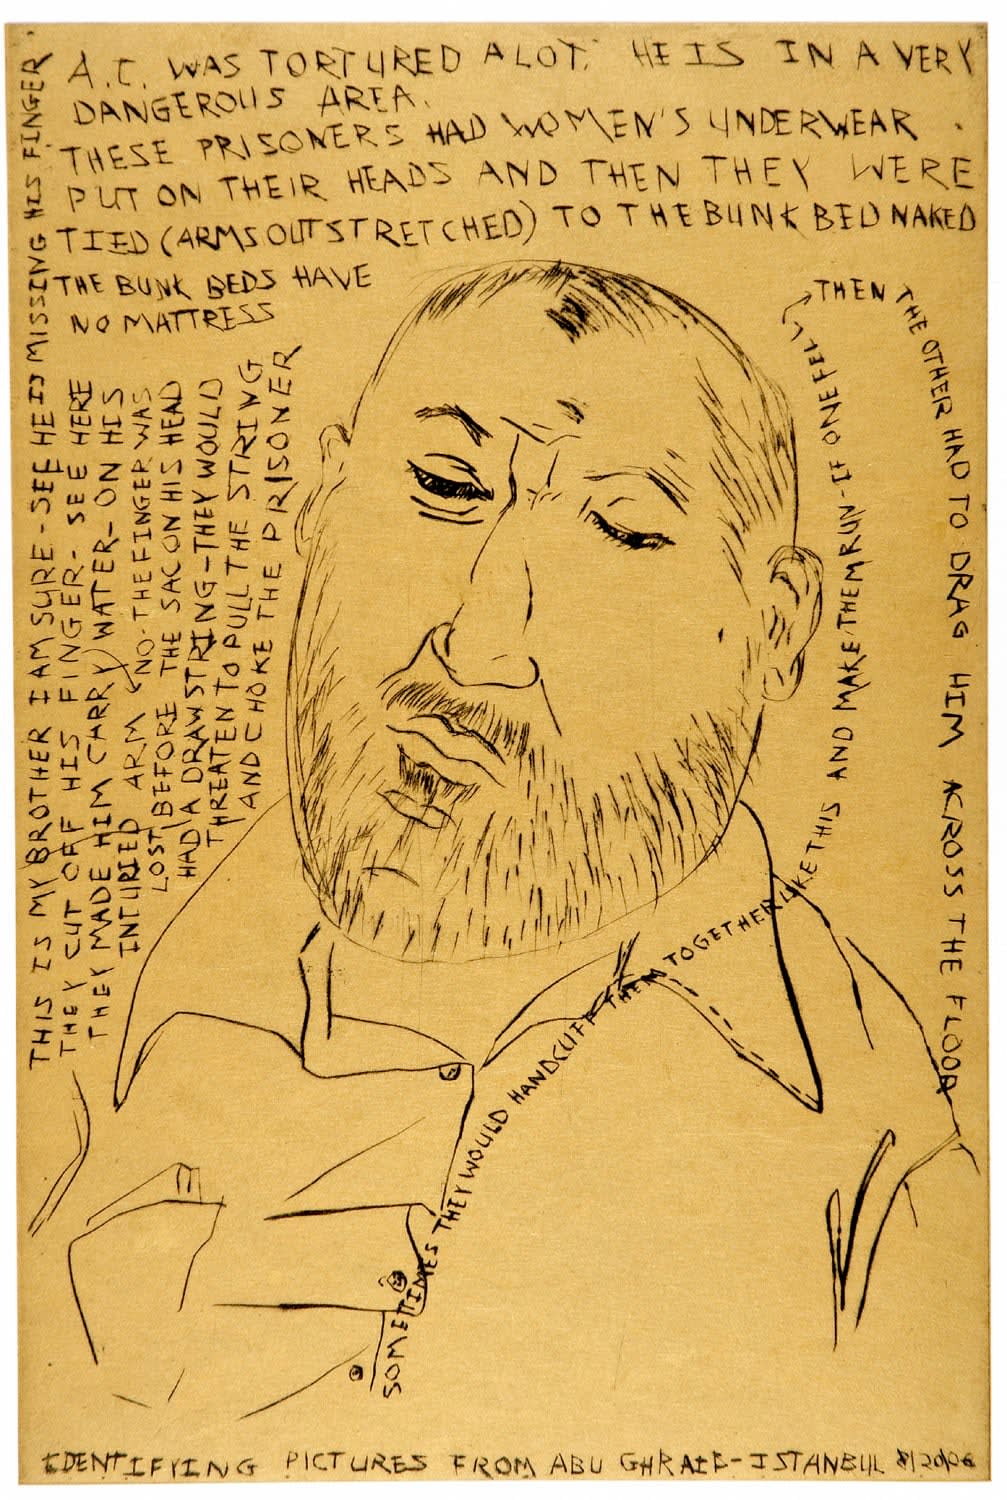 A.C. WAS TORTURED A LOT. HE IS IN A VERY
DANGEROUS AREA.
THESE PRISONERS HAD WOMEN'S UNDERWEAR
PUT ON THEIR HEADS AND THEN THEY WERE
TIED (ARMS OUTSTRETCHED) TO THE BUNK BED NAKED
THE BUNK BEDS HAVE
NO MATTRESS
THIS IS MY BROTHER I AM SURE - SEE HE IS MISSING HIS FINGER
THEY CUT OFF HIS FINGER - SEE HERE
THEY MADE HIM CARRY WATER - ON HIS
INTURIED ARM NO THE FINGER WAS
LOST BEFORE THE SAC ON HIS HEAD
HAD A DRAWSTRING - THEY WOULD
THREATEN TO PULL THE STRING
AND CHOKE THE PRISONER
SOMETIMES THEY WOULD HANDCUFF THEM TOGETHER LIKE THIS AND MAKE THEM RUN - IF ONE FELL THEN
THE OTHER HAD TO DRAG HIM ACROSS THE FLOOR
IDENTIFYING PICTURES FROM ABU GHRAIB - ISTANBUL 8/20/06